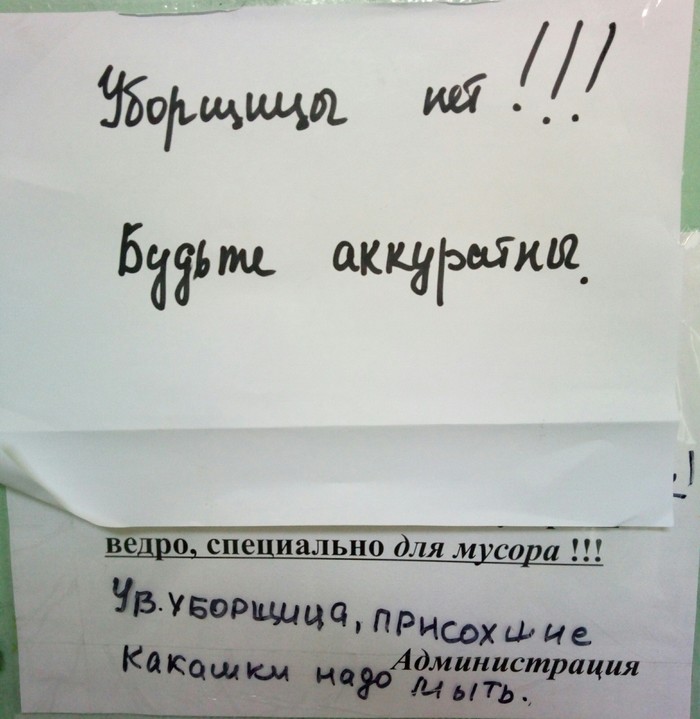 Уборщицы нет!!!
Будьте аккуратны.
ведро, специально для мусора !!!
Ув. уборщица, присохшие
Администрация
какашки надо мыть.